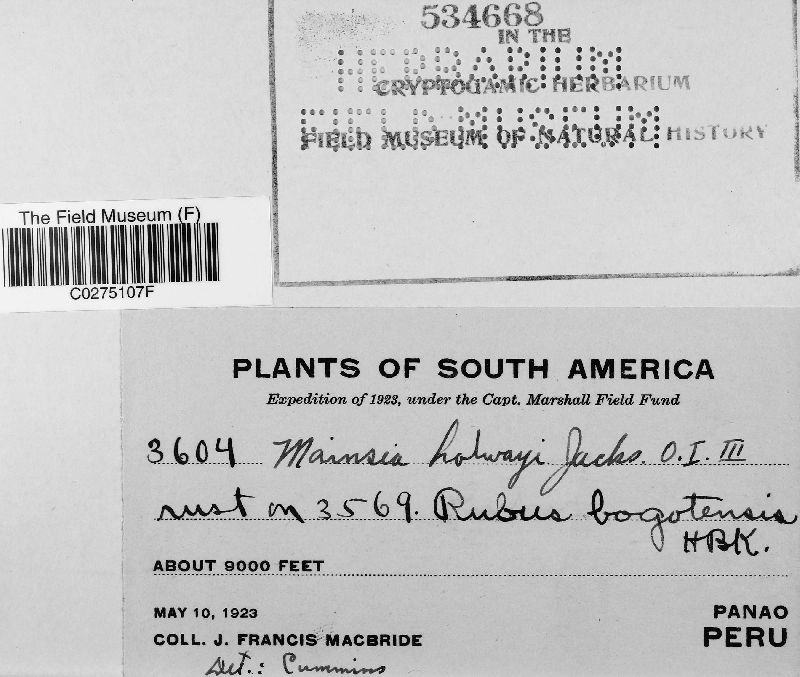 534668
IN THE
HERBARIUM
CRYPTOGAMIC HERBARIUM
FIELD MUSEUM
FIELD MUSEUM OF NATURAL HISTORY
The Field Museum (F)
C0275107F
PLANTS OF SOUTH AMERICA
Expedition of 1923, under the Capt. Marshall Field Fund
3604 Mainsia holwayi Jacks. O. I. III
rust on 3569. Rubus bogotensis
HBK.
ABOUT 9000 FEET
MAY 10, 1923
PANAO
COLL. J. FRANCIS MACBRIDE
PERU
Det.: Cummins